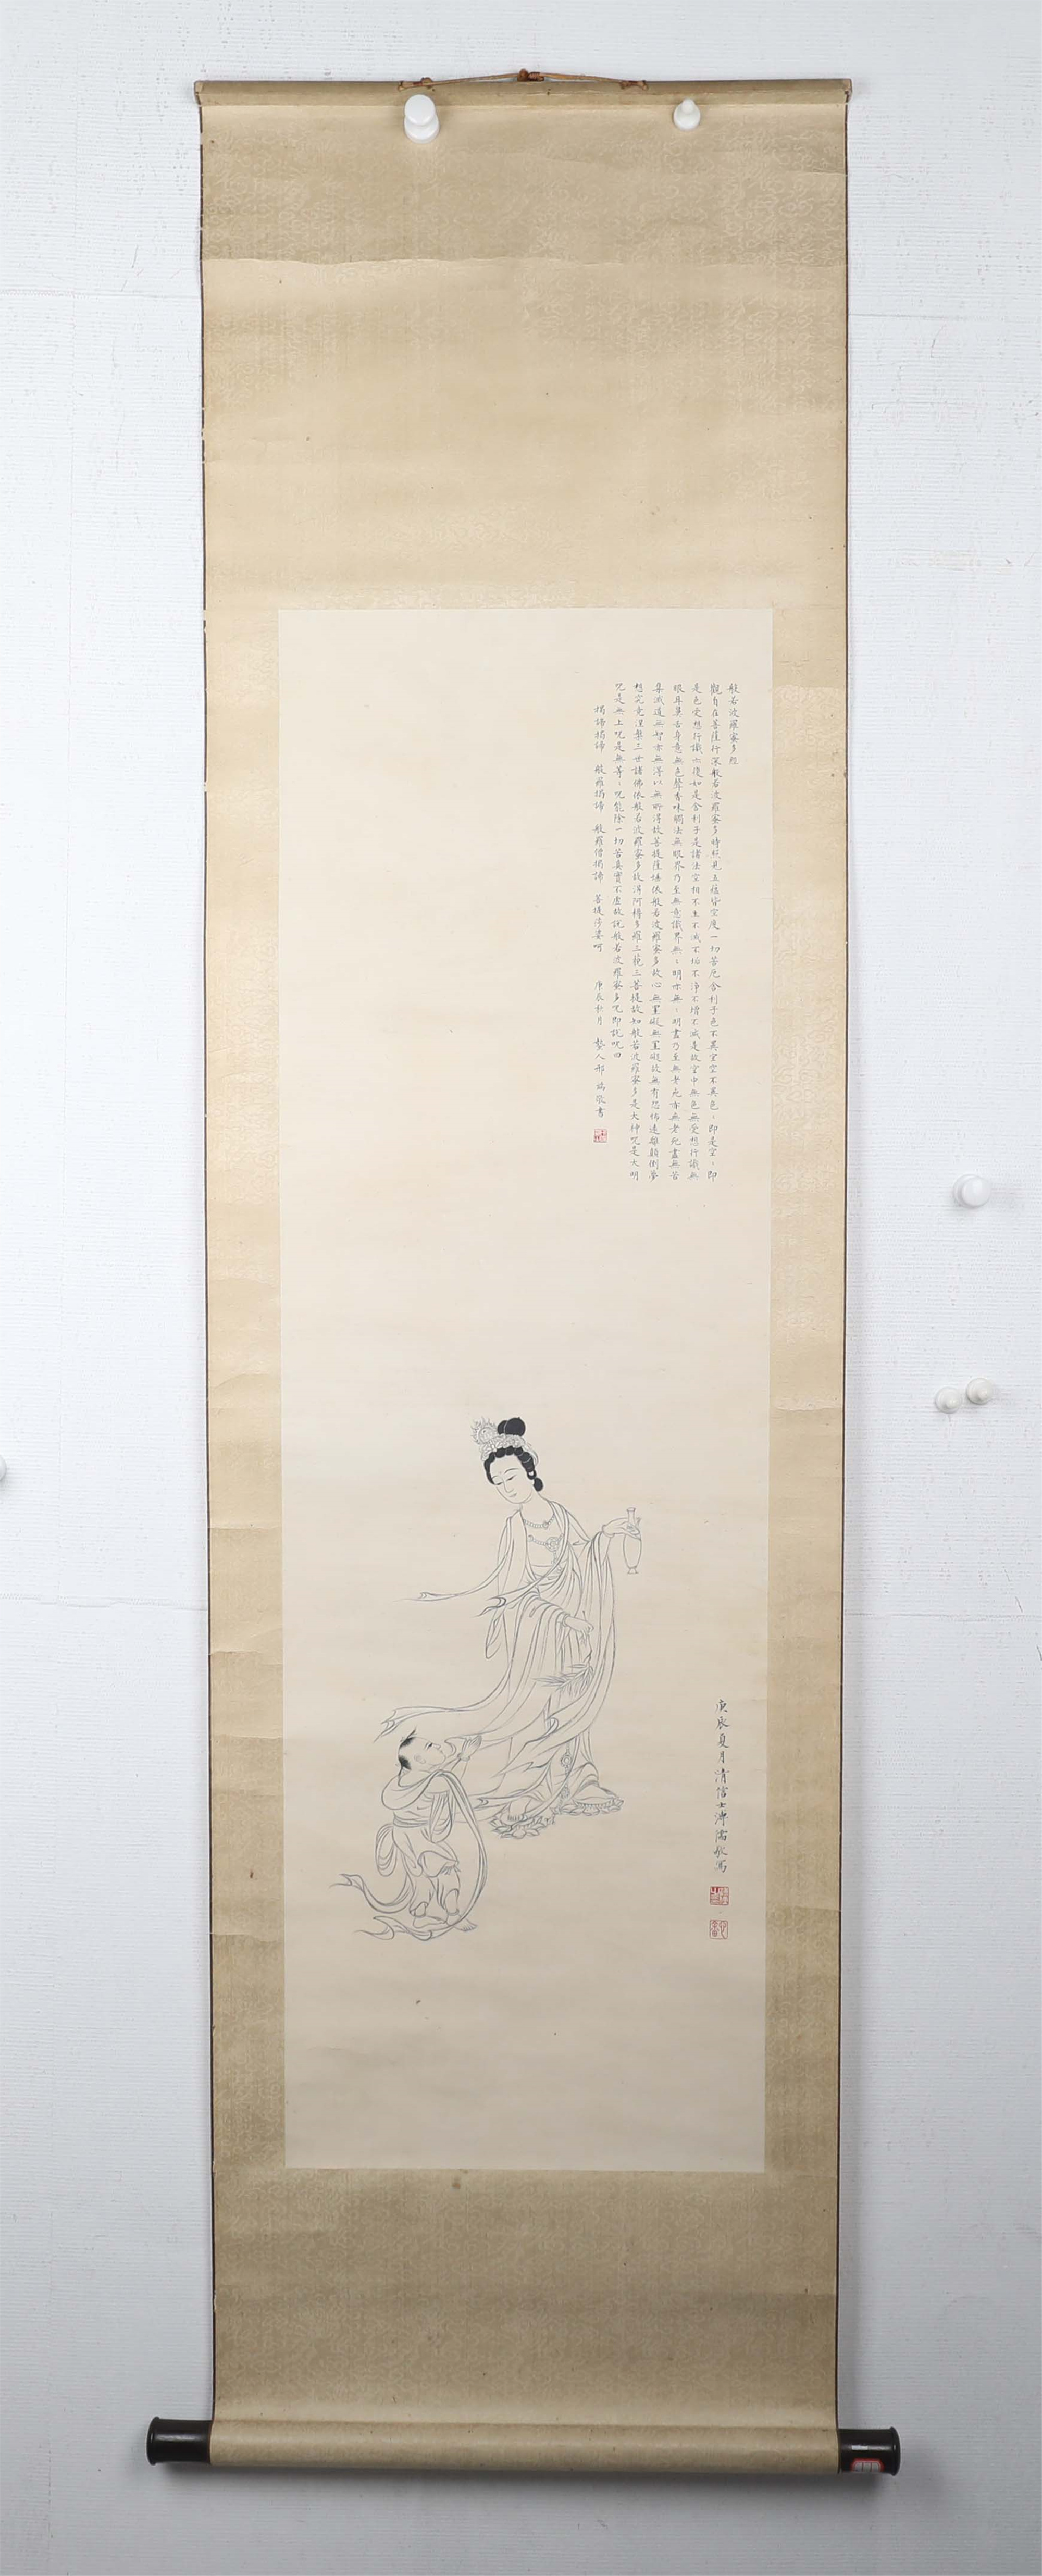 般若波羅蜜多經
觀自在菩薩行深般若波羅蜜多時照見五蘊皆空度一切苦厄舍利子色不異空空不異色〻即是空〻即
是色受想行識亦復如是舍利子是諸法空相不生不滅不垢不淨不增不減是故空中無色無受想行識無
眼耳鼻舌身意無色聲香味觸法無眼界乃至無意識界無〻明亦無〻明盡乃至無老死亦無老死盡無苦
集滅道無智亦無得以無所得故菩提薩埵依般若波羅蜜多故心無罣礙無罣礙故無有恐怖遠離顛倒夢
想究竟涅槃三世諸佛依般若波羅蜜多故得阿耨多羅三藐三菩提故知般若波羅蜜多是大神咒是大明
咒是無上咒是無等〻咒能除一切苦真實不虛故說般若波羅蜜多咒即說咒曰
揭諦揭諦 般羅揭諦 般羅僧揭諦 菩提薩婆呵 庚辰秋月 邢端敬書
庚辰夏月清信士溥儒敬寫